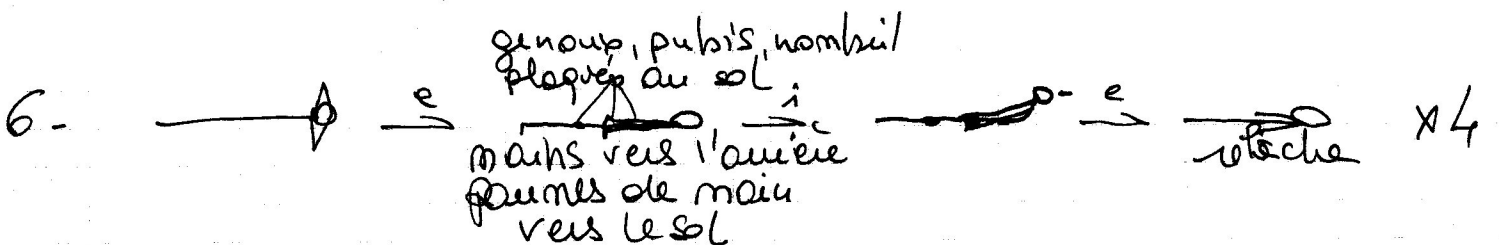 genoux, pubis, nombril
plaqués au sol
6- e i e x4
mains vers l'arrière
relâche
paumes de main
vers le sol